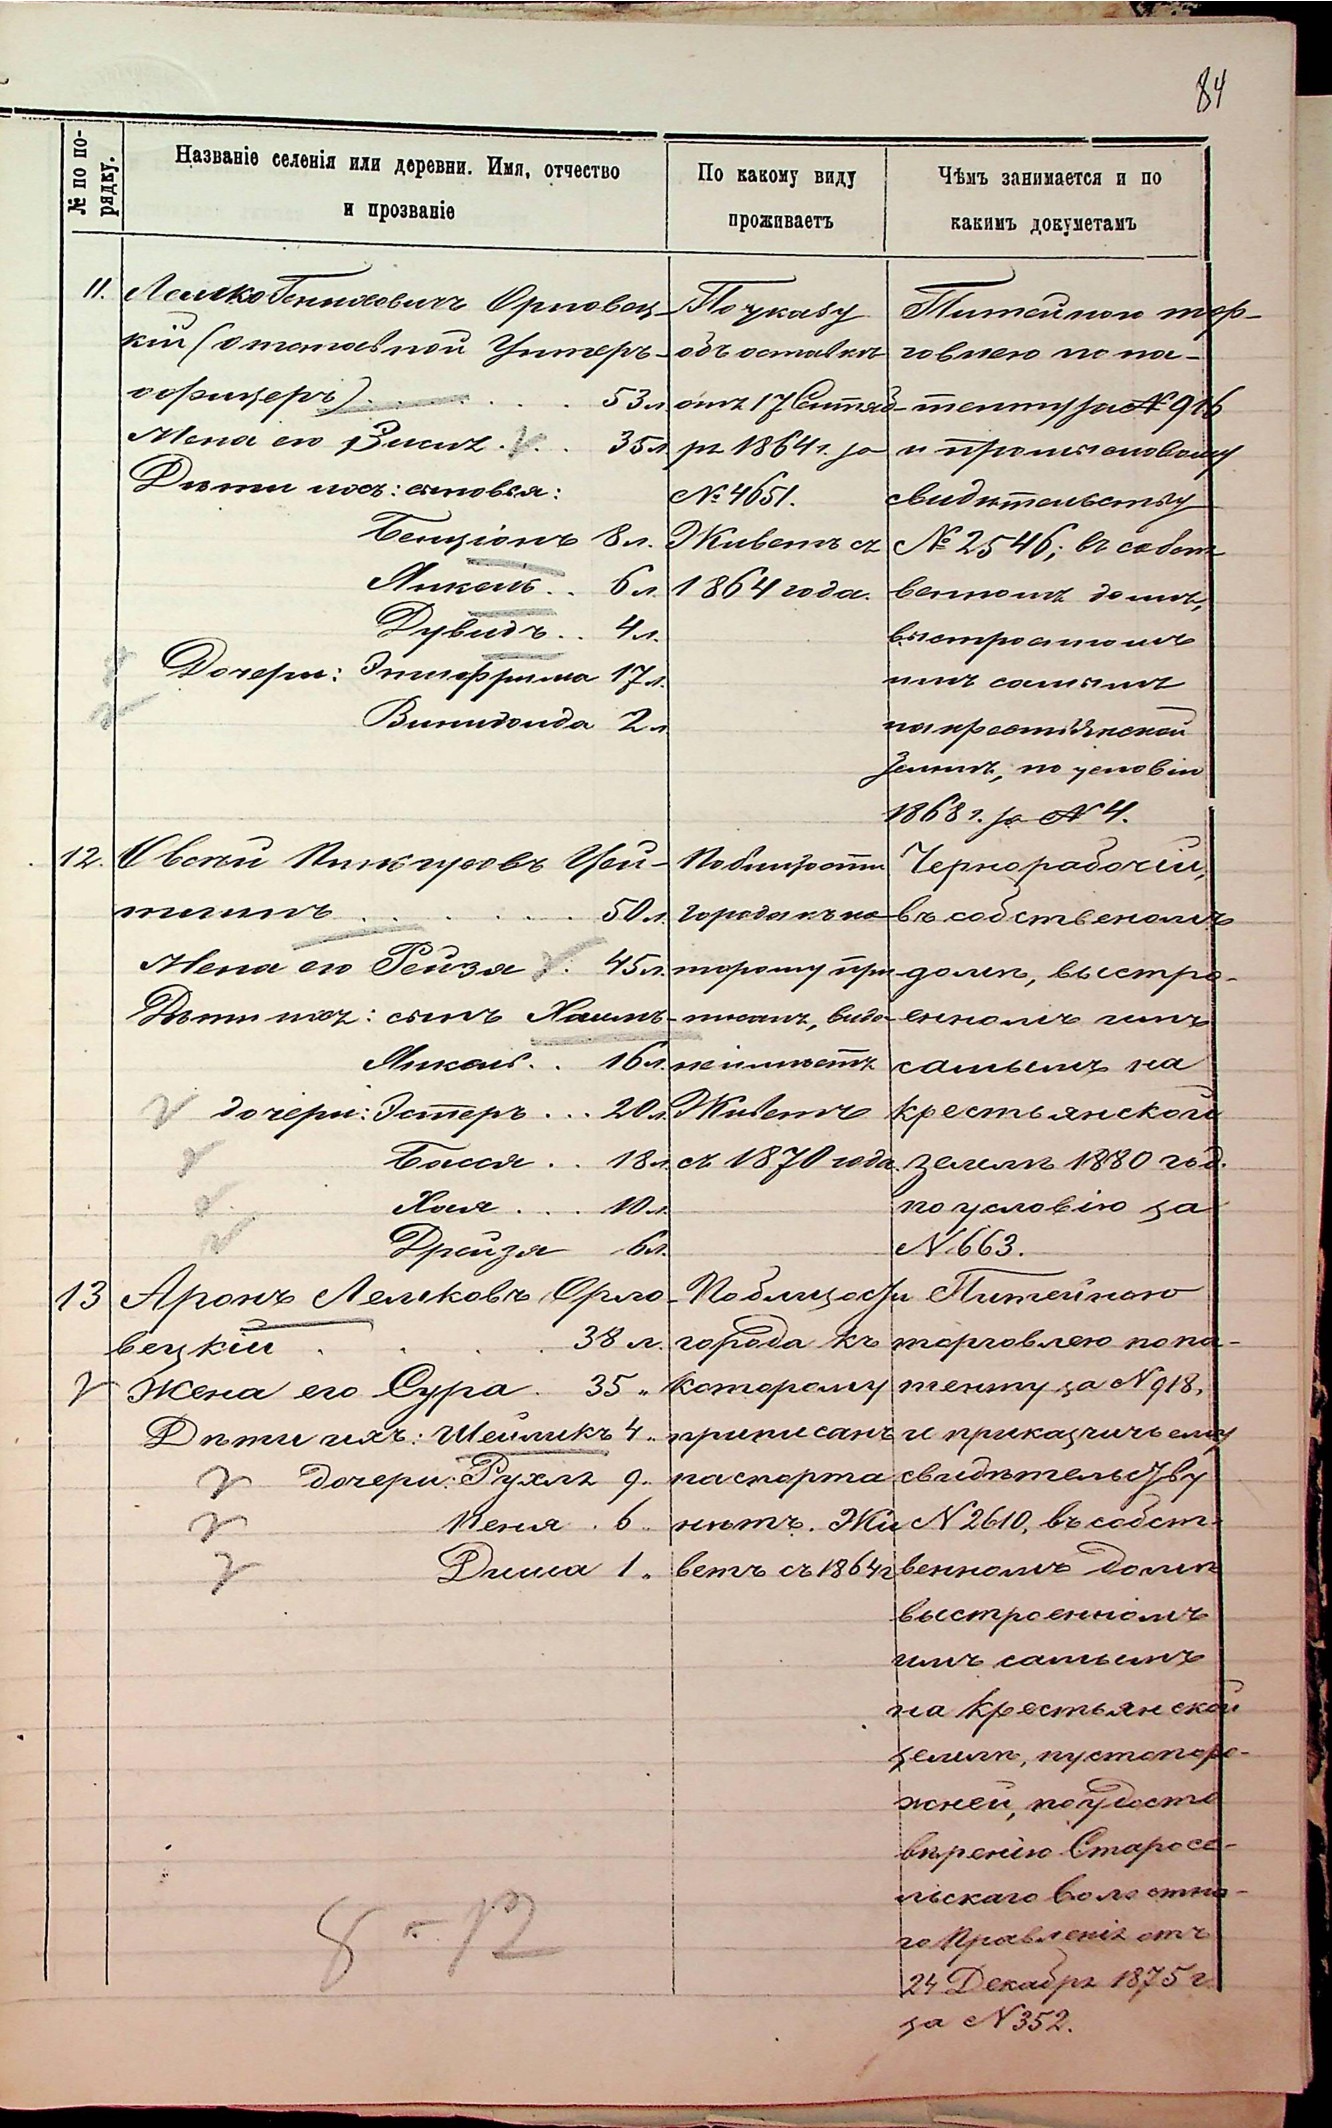 84
№ по по-
рядку.
Названіе селенія или деревни. Имя, отчество
и прозваніе
По какому виду
проживаетъ
Чѣмъ занимается и по
какимъ докуметамъ
11.
Лемко Орловец-
кій (отставной Унтеръ-
офицеръ) 53 л
Жена его 35 л
Дѣти ихъ: сыновья:
Бенціонъ 8 л.
Янкель 6 л.
Дувидъ 4 л.
Дочери: 17 л.
2 л
По указу
объ отставкѣ
отъ 17 Сентяб-
ря 1864 г. за
№ 4651.
Живетъ съ
1864 года.
Питейною тор-
говлею по па-
тенту за № 916
и промысловому
свидѣтельству
№ 2546; въ собст
венномъ домѣ,
выстроеномъ
имъ самымъ
на крестьянской
землѣ, по условію
1868 г. за № 4.
12.
Овсѣй Цей-
50 л.
Жена его Рейзя 45 л.
Дѣти ихъ: сынъ Хаимъ-
Янкель 16 л.
дочери: Эстеръ 20 л
Бася 18 л
Хая 10 л.
Дрейзя 6 л.
По близости
города къ ко-
торому при-
писанъ, вида
не имѣетъ
Живетъ
съ 1870 года.
Чернорабочій,
въ собственомъ
домѣ, выстро-
енномъ имъ
самымъ на
крестьянской
землѣ 1880 год.
по условію за
№ 663.
13
Аронъ Лемковъ Орло-
вецкій 38 л.
Жена его Сура 35 „
Дѣти ихъ: Шейликъ 4 „
дочери: Рухля 9 „
Кеня 6 „
Диша 1 „
По близости
города къ
которому
приписанъ
паспорта
нѣтъ. Жи
ветъ съ 1864 г
Питейною
торговлею по па-
тенту за № 918,
и приказчичьему
свидѣтельству
№ 2610, въ собст-
венномъ домѣ
выстроенномъ
имъ самымъ
на крестьянской
землѣ, пустопоро-
жней, по удосто
вѣренію Старосе-
льскаго Волостна-
го Правленія отъ
24 Декабря 1875 г.
за № 352.
8 - 12